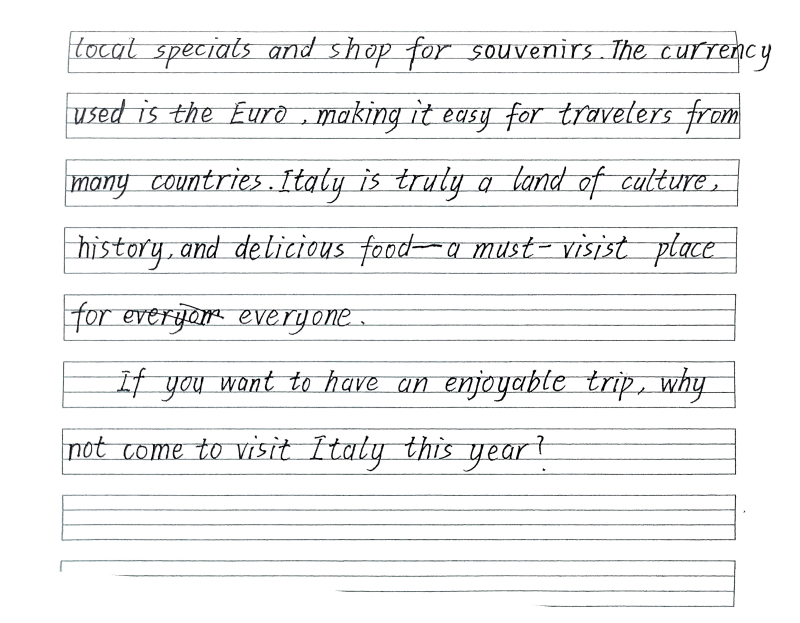 local specials and shop for souvenirs. The currency
used is the Euro, making it easy for travelers from
many countries. Italy is truly a land of culture,
history, and delicious food—a must-visist place
for everyone.
If you want to have an enjoyable trip, why
not come to visit Italy this year?